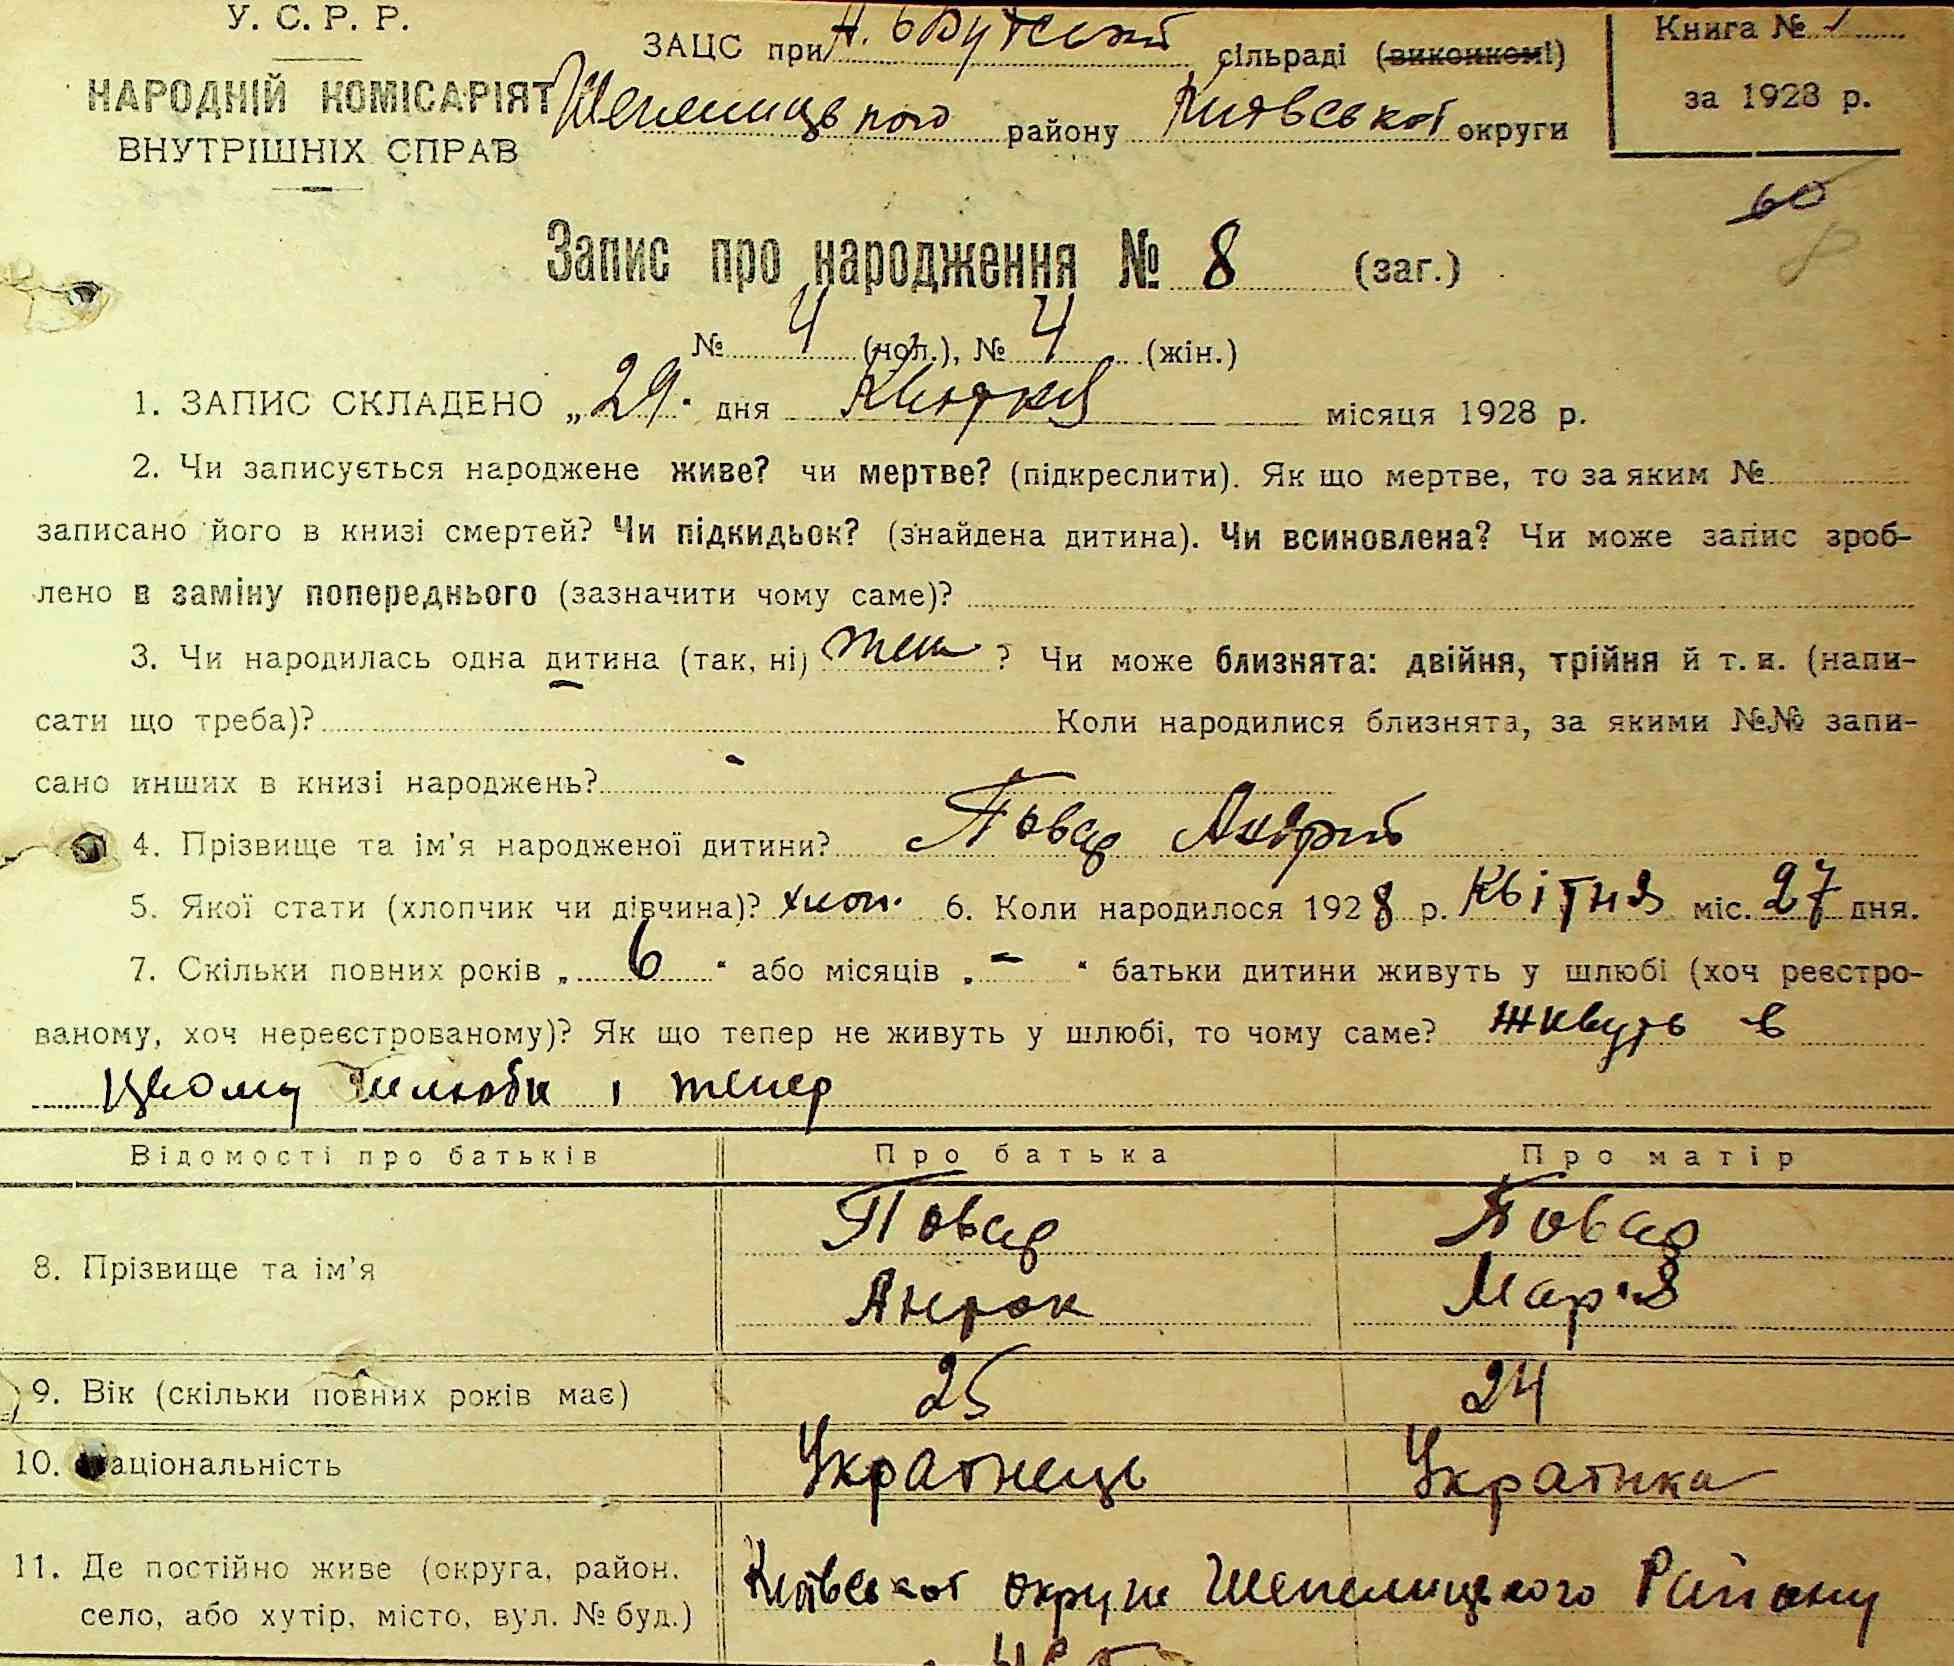 У. С. Р. Р.
НАРОДНІЙ КОМІСАРІЯТ
ВНУТРІШНІХ СПРАВ
ЗАЦС при сільраді (виконкомі)
Шепелицького району Київської округи
Книга №
за 1928 р.
60
8
Запис про народження № 8 (заг.)
№ 4 (чол.), № 4 (жін.)
1. ЗАПИС СКЛАДЕНО „29" дня місяця 1928 р.
2. Чи записується народжене живе? чи мертве? (підкреслити). Як що мертве, то за яким №
записано його в книзі смертей? Чи підкидьок? (знайдена дитина). Чи всиновлена? Чи може запис зроб-
лено в заміну попереднього (зазначити чому саме)?
3. Чи народилась одна дитина (так, ні) так ? Чи може близнята: двійня, трійня й т. и. (напи-
сати що треба)? Коли народилися близнята, за якими №№ запи-
сано инших в книзі народжень?
4. Прізвище та ім'я народженої дитини? Повар Андрий
5. Якої стати (хлопчик чи дівчина)? хлоп. 6. Коли народилося 1928 р. Квітня міс. 27 дня.
7. Скільки повних років „ 6 " або місяців „ - " батьки дитини живуть у шлюбі (хоч реєстро-
ваному, хоч нереєстрованому)? Як що тепер не живуть у шлюбі, то чому саме? живуть в
цьому шлюби і тепер
Відомості про батьків Про батька Про матір
8. Прізвище та ім'я Повар Повар
Мар'я
9. Вік (скільки повних років має) 25 24
10. Національність Українець Українка
11. Де постійно живе (округа, район, село, або хутір, місто, вул. № буд.) Київської округи Шепелицького Району